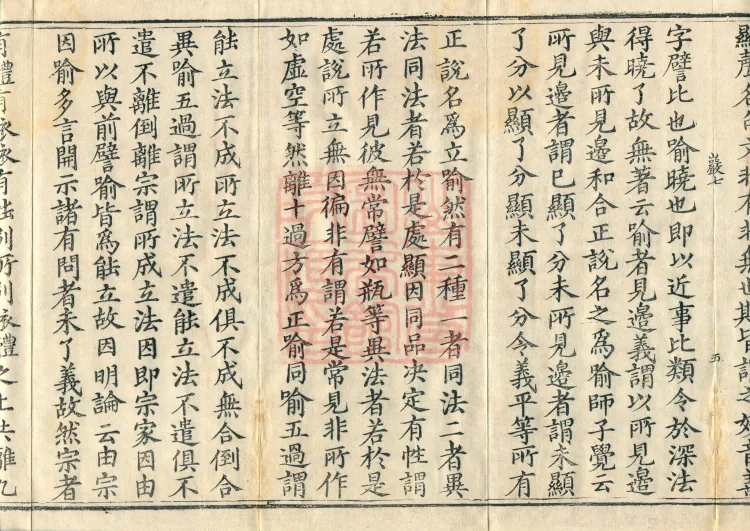 字譬比也喻曉也即以近事比類令於深法
得曉了故無著云喻者見邊義謂以所見邊
與未所見邊和合正說名之為喻師子覺云
所見邊者謂巳顯了分未所見邊者謂未顯
了分以顯了分顯未顯了分令義平等所有
正說名為立喻然有二種一者同法二者異
法同法者若於是處顯因同品决定有性謂
若所作見彼無常譬如瓶等異法者若於是
處說所立無因徧非有謂若是常見非所作
如虛空等然離十過方為正喻同喻五過謂
能立法不成所立法不成俱不成無合倒合
異喻五過謂所立法不遣能立法不遣俱不
遣不離倒離宗謂所成立法因即宗家因由
所以與前譬喻皆為能立故因明論云由宗
因喻多言開示諸有問者未了義故然宗者
巖七
五